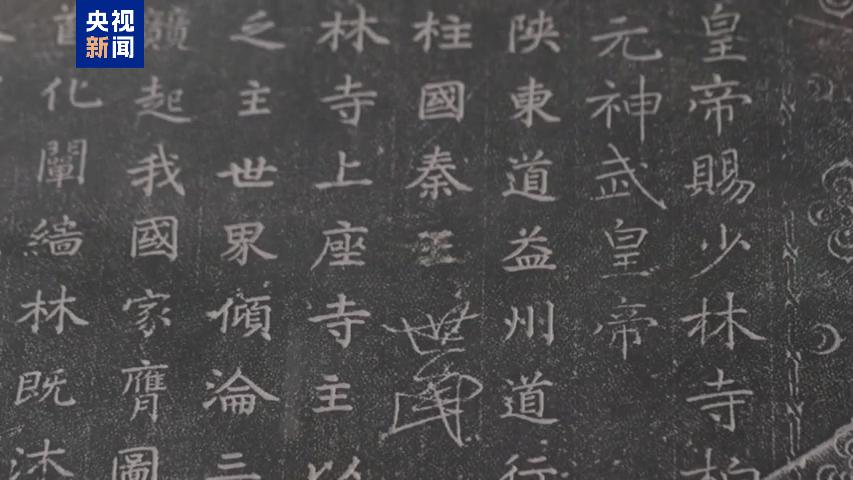 央视
新闻
皇帝賜少林寺柏
元神武皇帝
陜東道益州道行
柱國秦王世民
林寺上座寺主以
之主世界傾淪三
起我國家膺圖
化闡緇林既沐